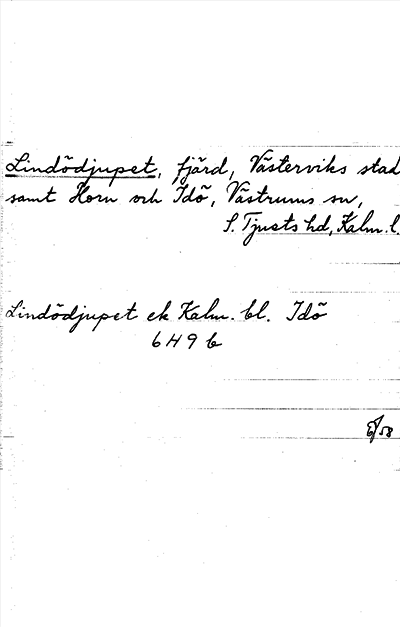 Lindödjupet, fjärd, Västerviks stad
samt Horn och Idö, Västrums sn,
S. Tjusts hd, Kalm. l.
Lindödjupet ek Kalm. bl. Idö
6 H 9 b
58